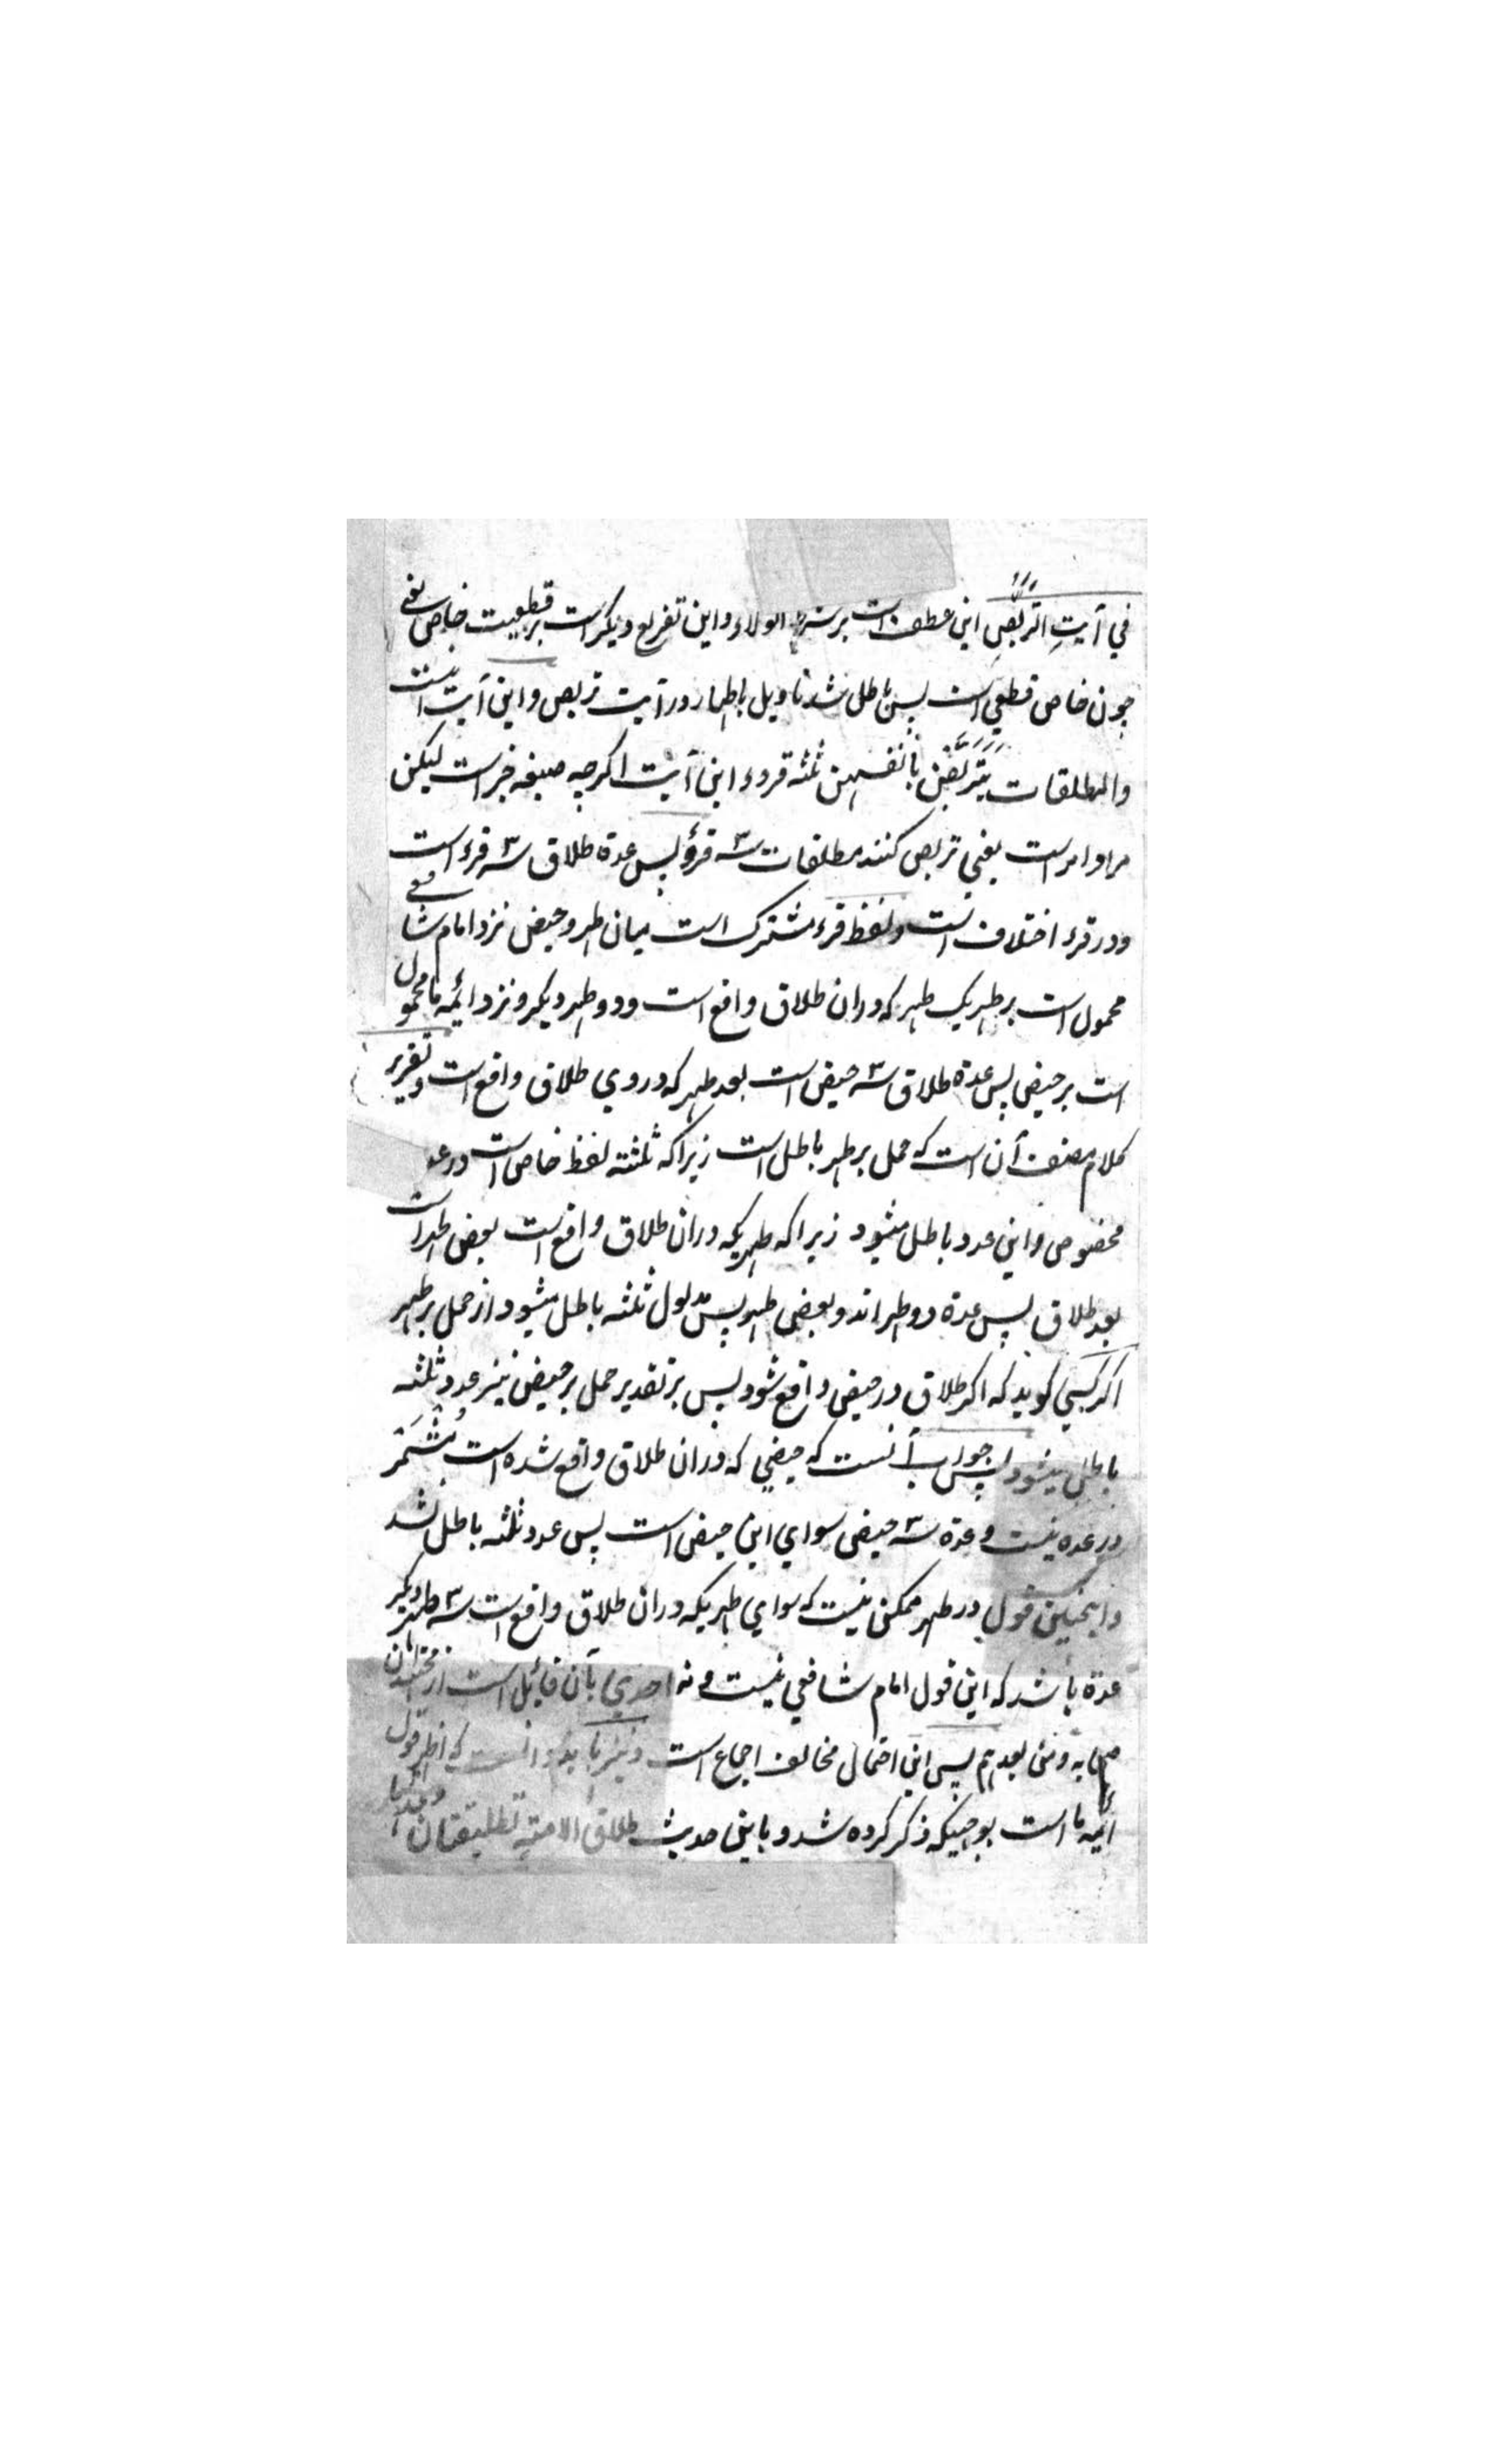 في آيتِ التربّصِ این عطف است بر شرط الولاء و این تفریع دیکر است بر قطعیت خاص یعنی
جون خاص قطعي است پس باطل شد تاویل باطهار در آیت تربص و این آیت اینست
والمطلقات یَتَرَبَّصْنَ بانفسهن ثلثه قروء این آیت اکرچه صیغه خبر است لیکن
مراد امر است یعني تربص کنند مطلقات سه قرؤ پس عدة طلاق سه قرء است
ودر قرء اختلاف است ولفظ قرء مشترک است میان طهر وحیض نزد امام شافعي
محمول است بر طهر یک طهر که دران طلاق واقع است ودو طهر دیکر ونزد ائمه ما محمول
است بر حیض پس عدة طلاق سه حیض است بعد طهر که در وي طلاق واقع است وتقریر
کلام مصنف آن است که حمل بر طهر باطل است زیرا که ثلثته لفظ خاص است در عدد
مخصوص واین عدد باطل میشود زیرا که طهریکه دران طلاق واقع است بعض طهر است
بعد طلاق پس عدة دو طهر اند وبعض طهر پس مدلول ثلثه باطل میشود از حمل بر طهر
اکر کسي کوید که اکر طلاق در حیض واقع شود پس بر تقدیر حمل بر حیض نیز عدد ثلثه
باطل میشود پس جواب آنست که حیضي که دران طلاق واقع شده است
در عده نیست وعدة سه حیض سواي این حیض است پس عدد ثلثه باطل نشد
واینچنین قول در طهر ممکن نیست که سواي طهریکه دران طلاق واقع است سه طهر دیکر
عدة باشد که این قول امام شافعي نیست ونه احدي بآن قائل است از مجتهدان
صحابه ومن بعدهم پس این احتمال مخالف اجماع است ونیز باید دانست که اظهر قول
ائمه ما است بوجهیکه ذکر کرده شد وباین حدیث طلاق الامتِه تطلیقتان وعدتها